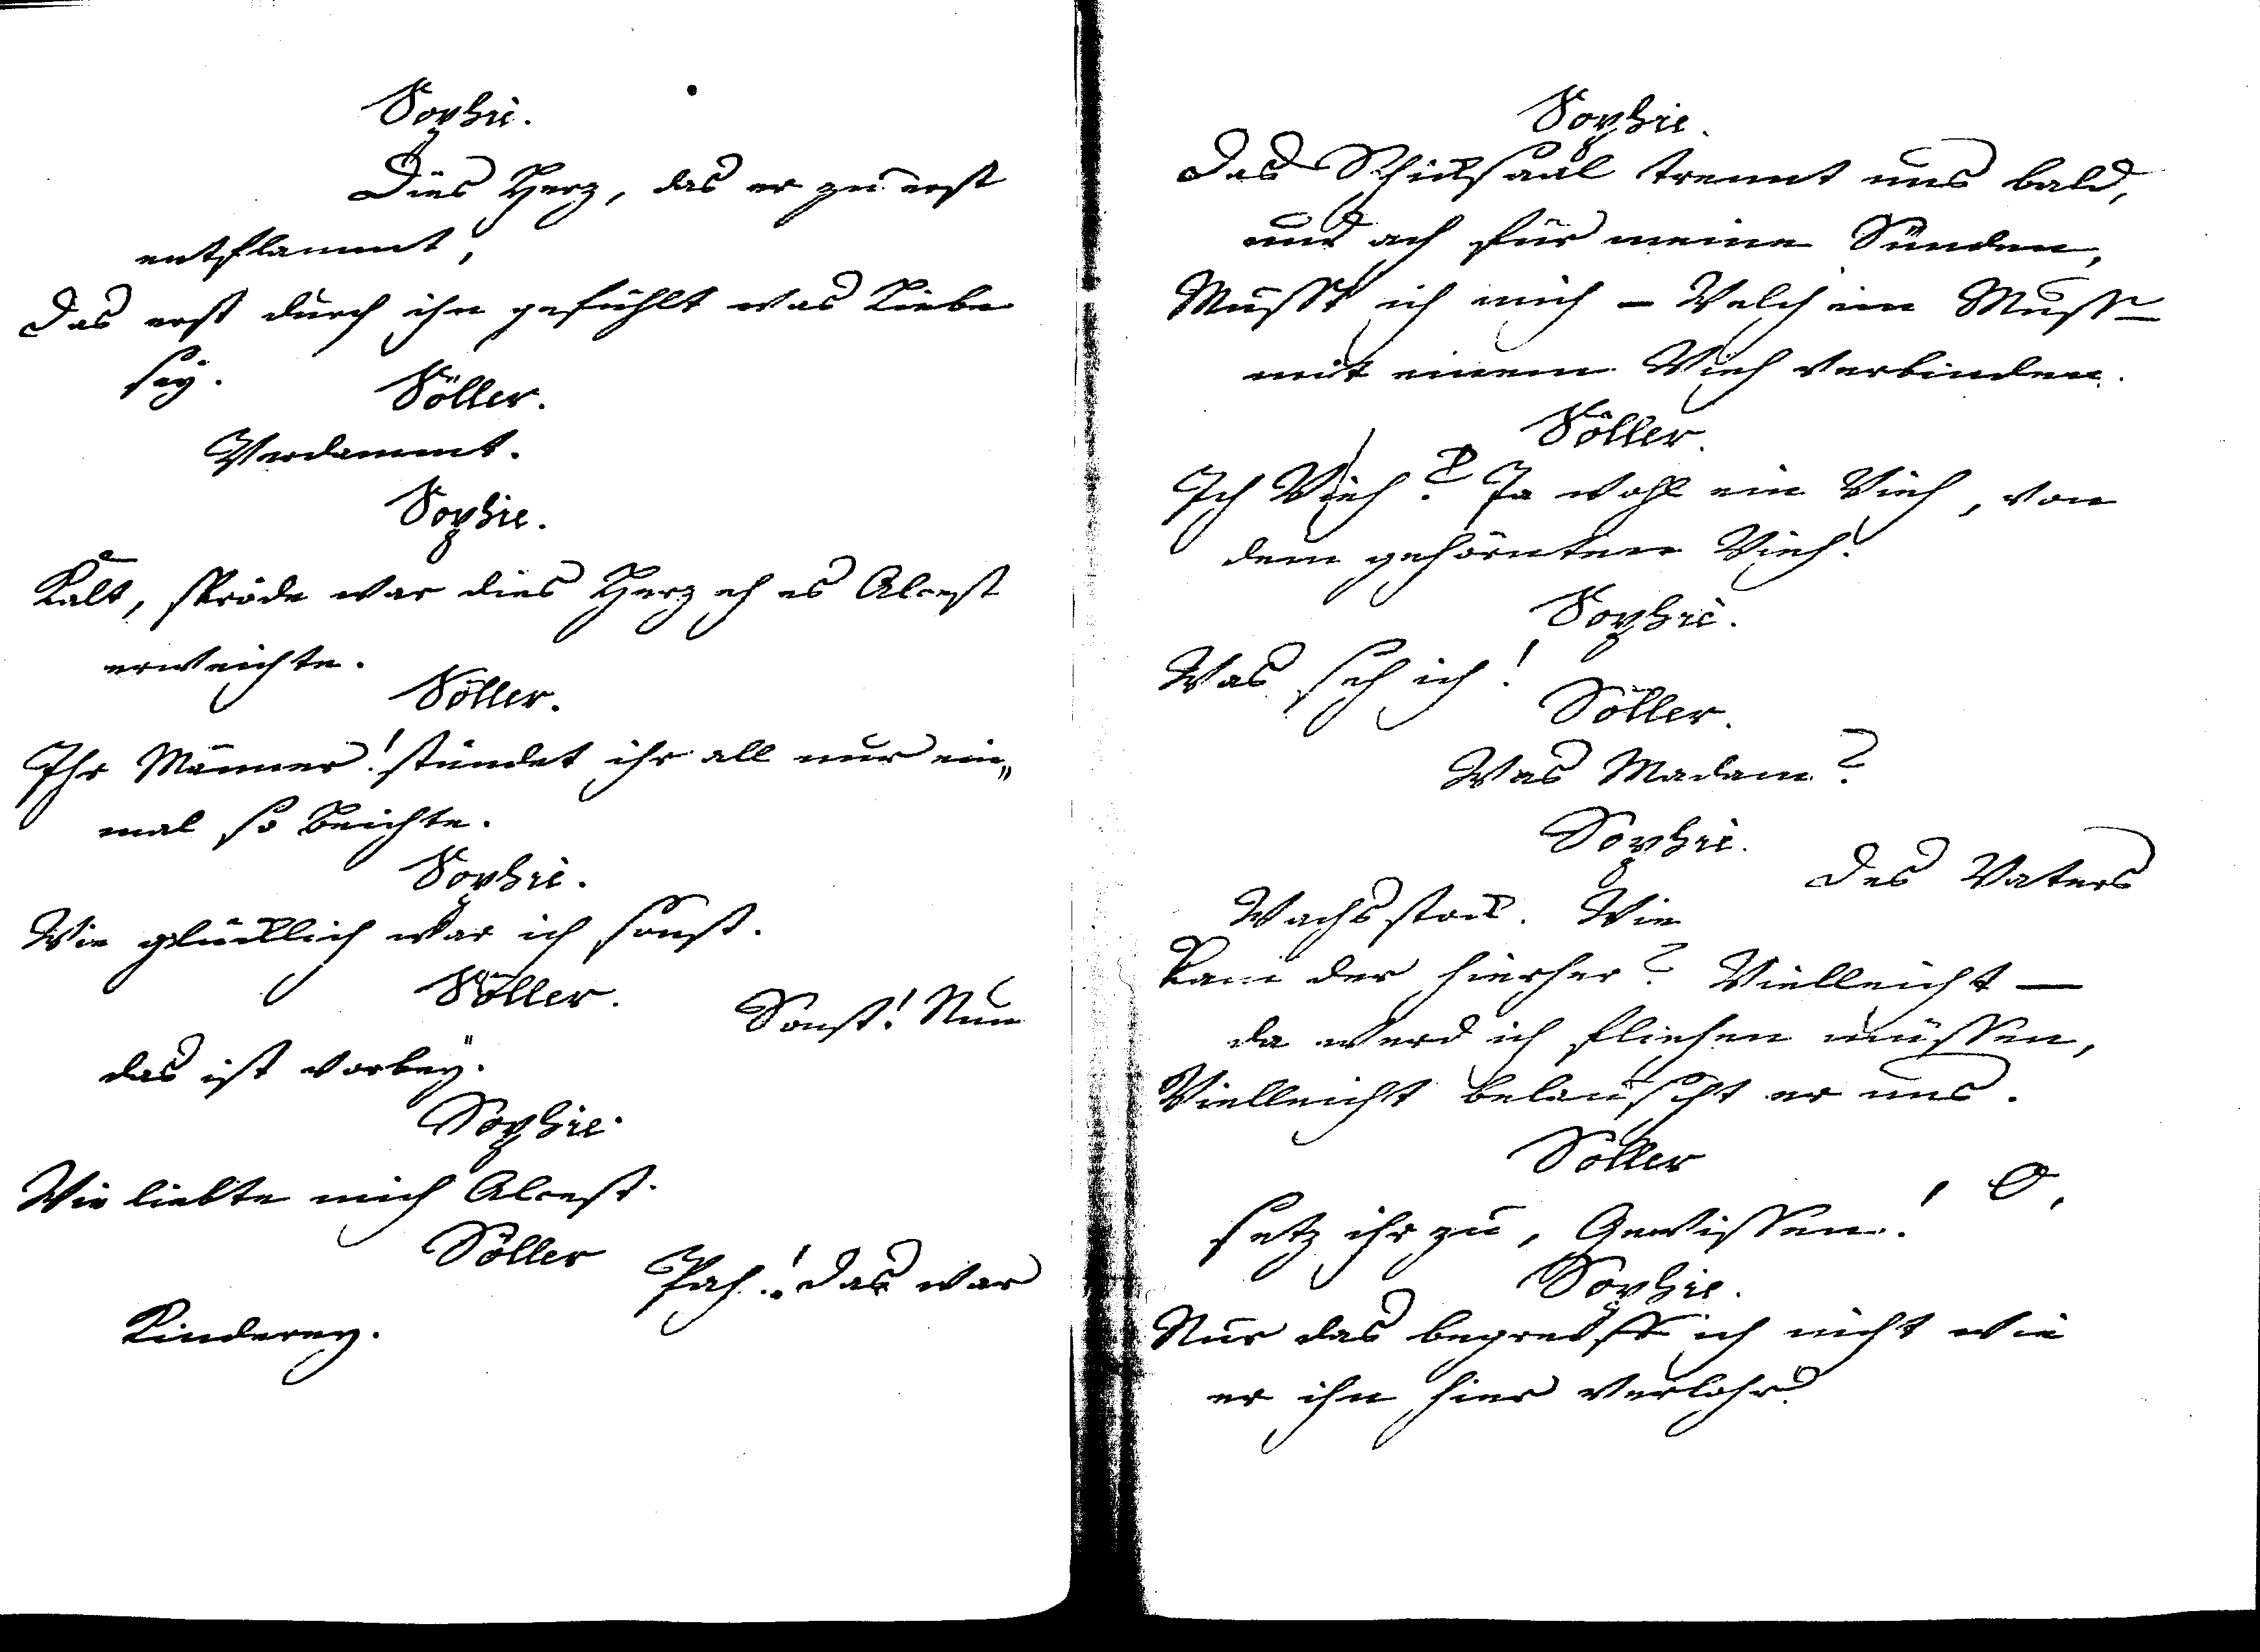 Sophie.
Dies Herz, das er zu erst
entflammt,
Das erst durch ihn gefühlt was Liebe
sey.
Söller.
Verdammt.
Sophie.
Kalt, spröde war dies Herz eh es Alcest
erweichte.
Söller.
Ihr Männer! stündet ihr all nur ein„
mal so Beichte.
Sophie.
Wie glücklich war ich sonst.
Söller.
Sonst! Nun
das ist vorbey.
Sophie.
Wie liebte mich Alcest.
Söller
Pah! das war
Kinderey.
Sophie.
Das Schicksaal trennt uns bald,
und ach für meine Sünden,
Musst ich mich – Welch ein Muss –
mit einem Vieh verbinden.
Söller.
Ich Vieh? Ja wohl ein Vieh, von
dem gehörnten Vieh!
Sophie.
Was seh ich!
Söller.
Was Madam?
Sophie.
Des Vaters
Wachsstock. Wie
Kam der hierher? Vielleicht —
da werd ich fliehen müssen,
Vielleicht belauscht er uns.
Söller
O,
setz ihr zu, Gewissen!
Sophie.
Nur das begreiff ich nicht wie
er ihn hier verlohr?